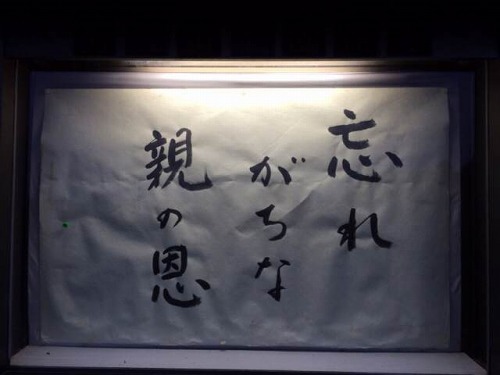 忘れ
がちな
親の恩